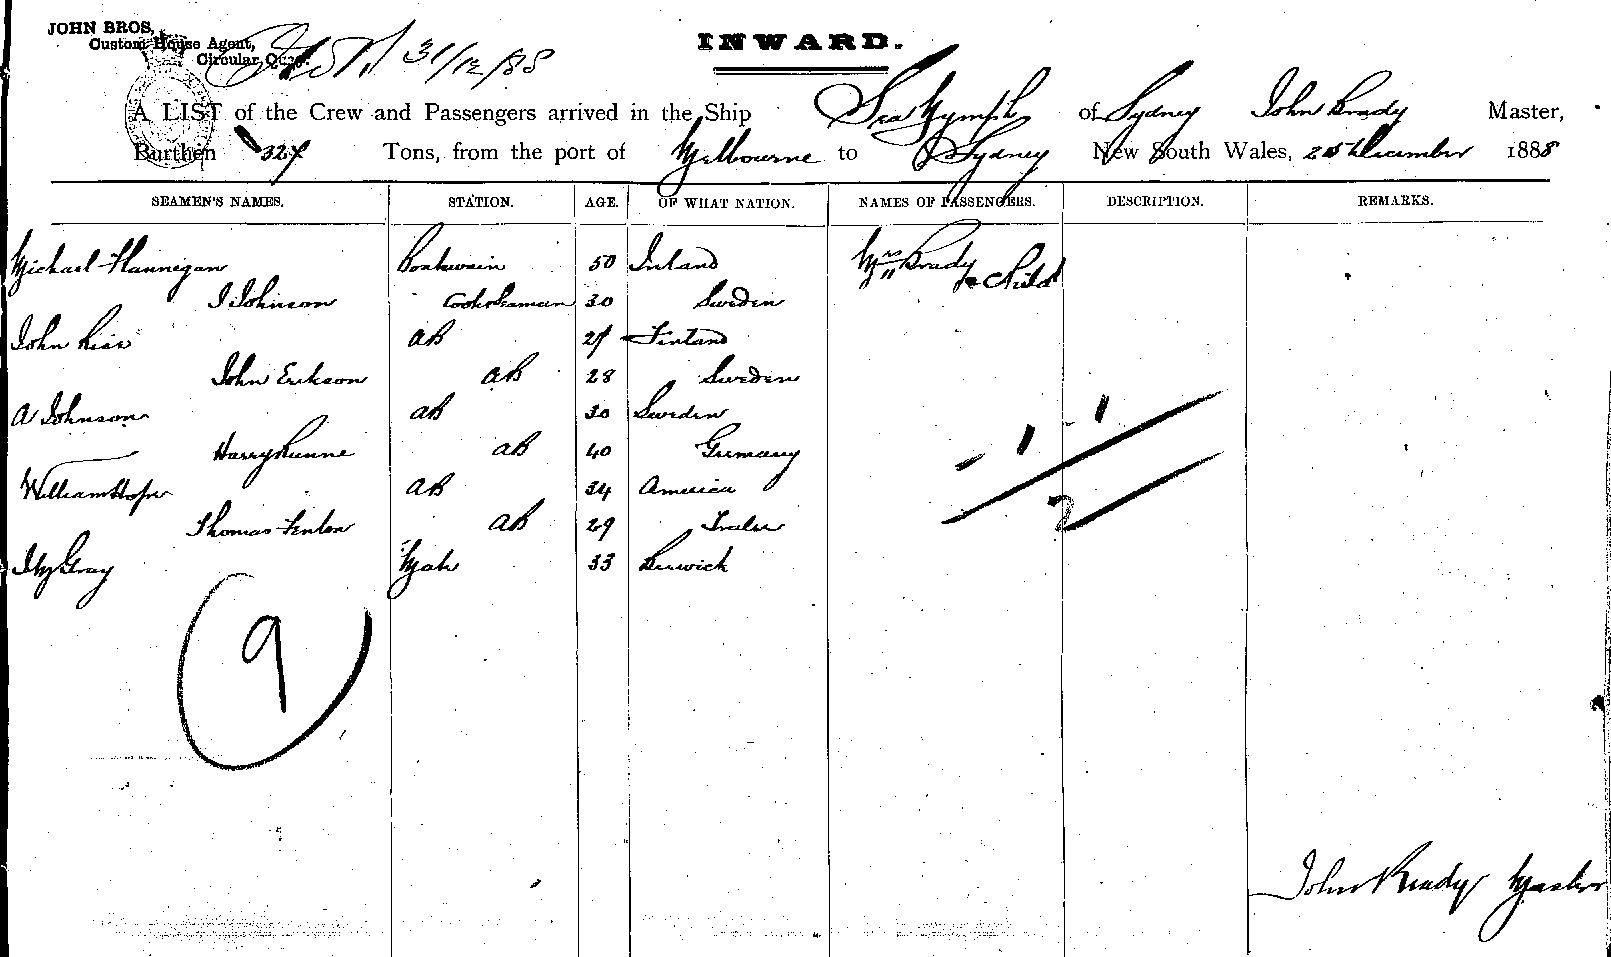 JOHN BROS,
Custom House Agent,
Circular Quay.
31/12/88
INWARD.
A LIST of the Crew and Passengers arrived in the Ship Sea Nymph of Sydney John Brady Master,
Burthen 327 Tons, from the port of Melbourne to Sydney New South Wales, December 1888
SEAMEN'S NAMES. STATION. AGE. OF WHAT NATION. NAMES OF PASSENGERS. DESCRIPTION. REMARKS.
Michael Flannigan Boatswain 50 Ireland Mrs Brady
" & Child
J Johnson Cook & Seaman 30 Sweden
John AB Finland
John Erikson AB 28 Sweden
A Johnson AB 30 Sweden
Harry AB 40 Germany
William AB 34 America
Thomas Fenton AB 29 Tralee
Gray Mate 33 Berwick
1 1
2
9
John Brady Master